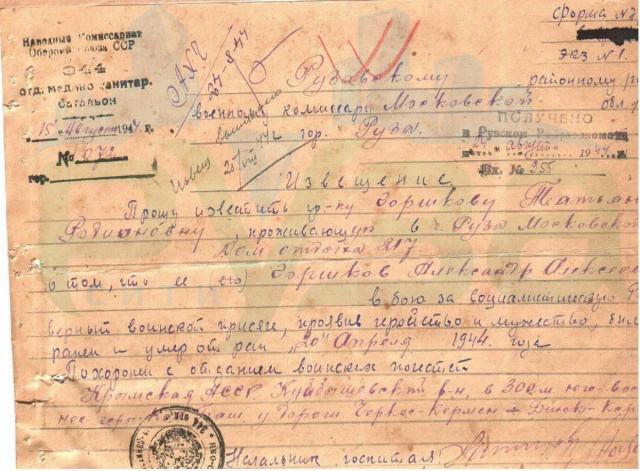 форма №7
экз №1.
Народный Комиссариат
Обороны Союза ССР
344
отд. медико санитар.
батальон
15 Август 1944 г.
№ 072
гор.
АХЧ
23-8-44
Рузавскому районному
военному комиссару Московской обл.
гор. Руза.
ПОЛУЧЕНО
в Рузском Райвоенкомате
24 август 1944
Вх. № 955
Извещение
Прошу известить гр-ку Горшкову Татьян
Родионовну, проживающую в г. Руза Московской
Дом отдыха 217.
о том, что ее (его) Горшков Александр Алексее
в бою за социалистическую
верный воинской присяге, проявив геройство и мужество, был
ранен и умер от ран „20" Апреля 1944 года
Похоронен с отданием воинских почестей
Крымская АССР. Куйбышевский р-н, в 300 м юго-вос
нее у дороги Черкес-Кермен
Начальник госпиталя